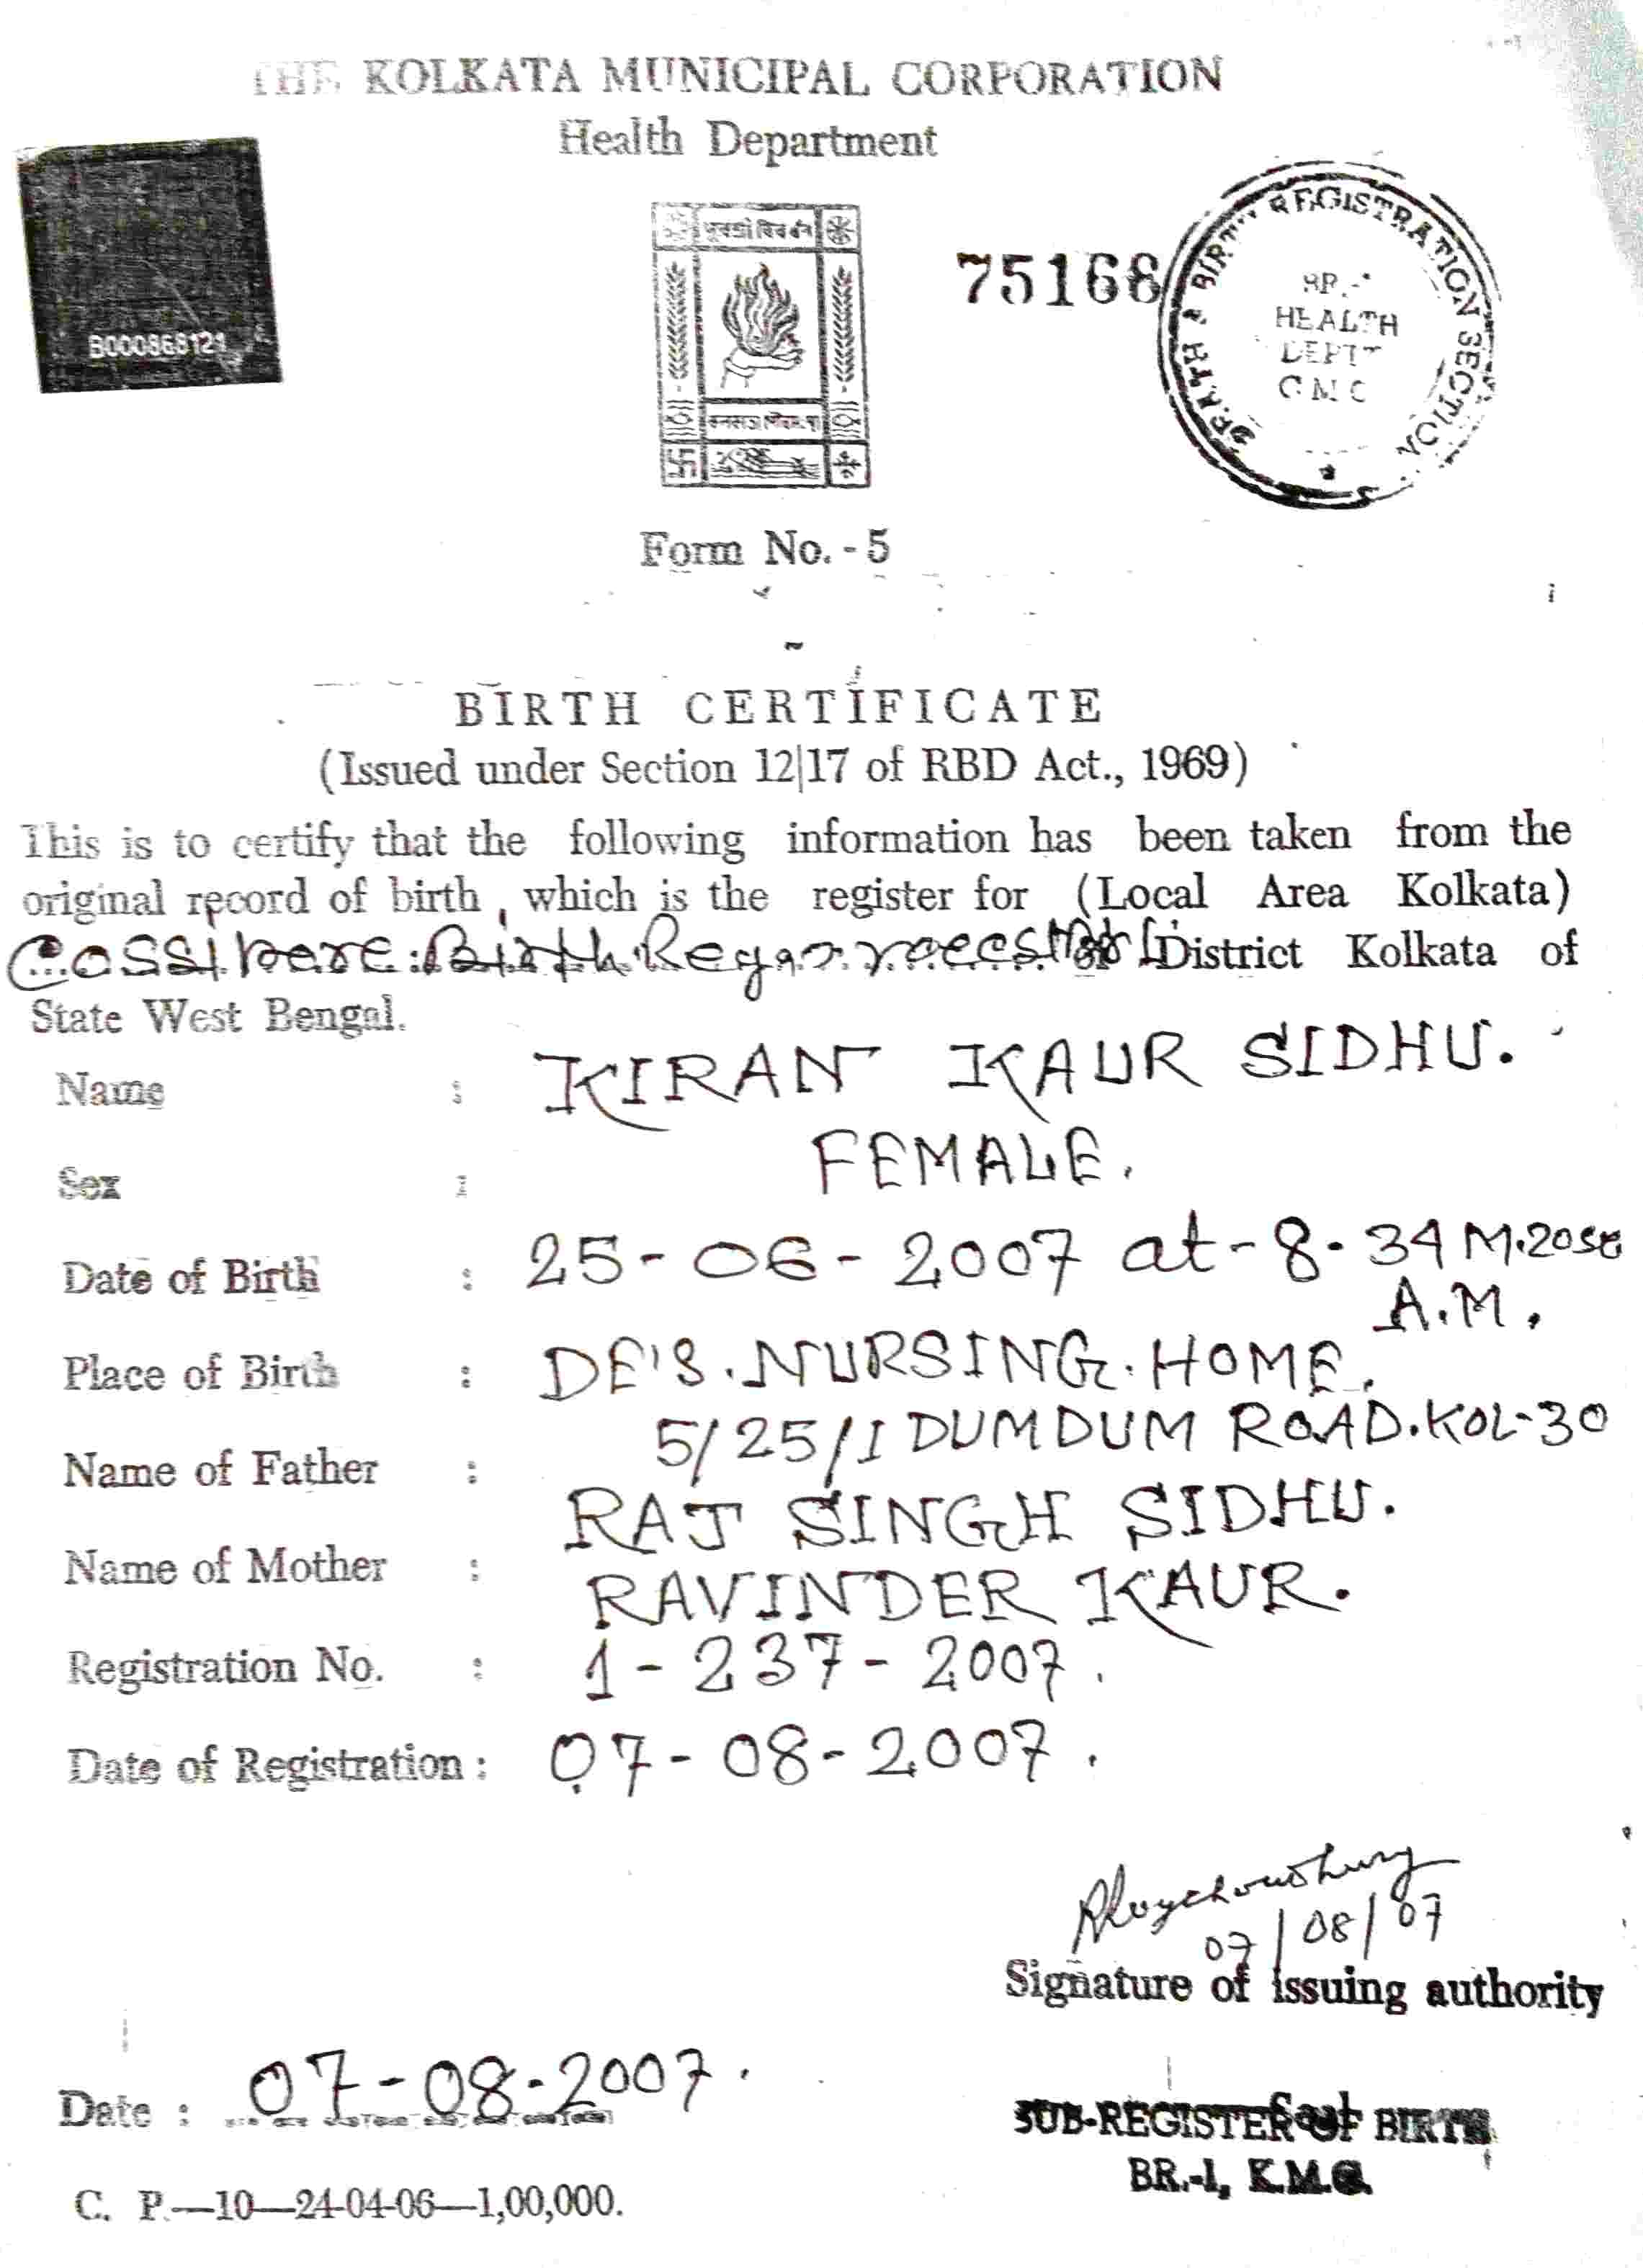 THE KOLKATA MUNICIPAL CORPORATION
Health Department
B000868121
75168
REGISTRATION SECTION
HEALTH
DEPTT
Form No. - 5
BIRTH CERTIFICATE
(Issued under Section 12|17 of RBD Act., 1969)
This is to certify that the following information has been taken from the
original record of birth, which is the register for (Local Area Kolkata)
Cossipore Birth District Kolkata of
State West Bengal.
Name : KIRAN KAUR SIDHU.
Sex : FEMALE.
Date of Birth : 25-06-2007 at-8.34 M.20se
A.M.
Place of Birth : DE'S. NURSING. HOME.
5/25/1 DUMDUM ROAD. KOL-30
Name of Father : RAJ SINGH SIDHU.
Name of Mother : RAVINDER KAUR.
Registration No. : 1-237-2007.
Date of Registration : 07-08-2007.
07/08/07
Signature of issuing authority
Date : 07-08-2007.
SUB-REGISTER OF BIRTH
BR.-I, K.M.C.
C. P.—10—24-04-06—1,00,000.